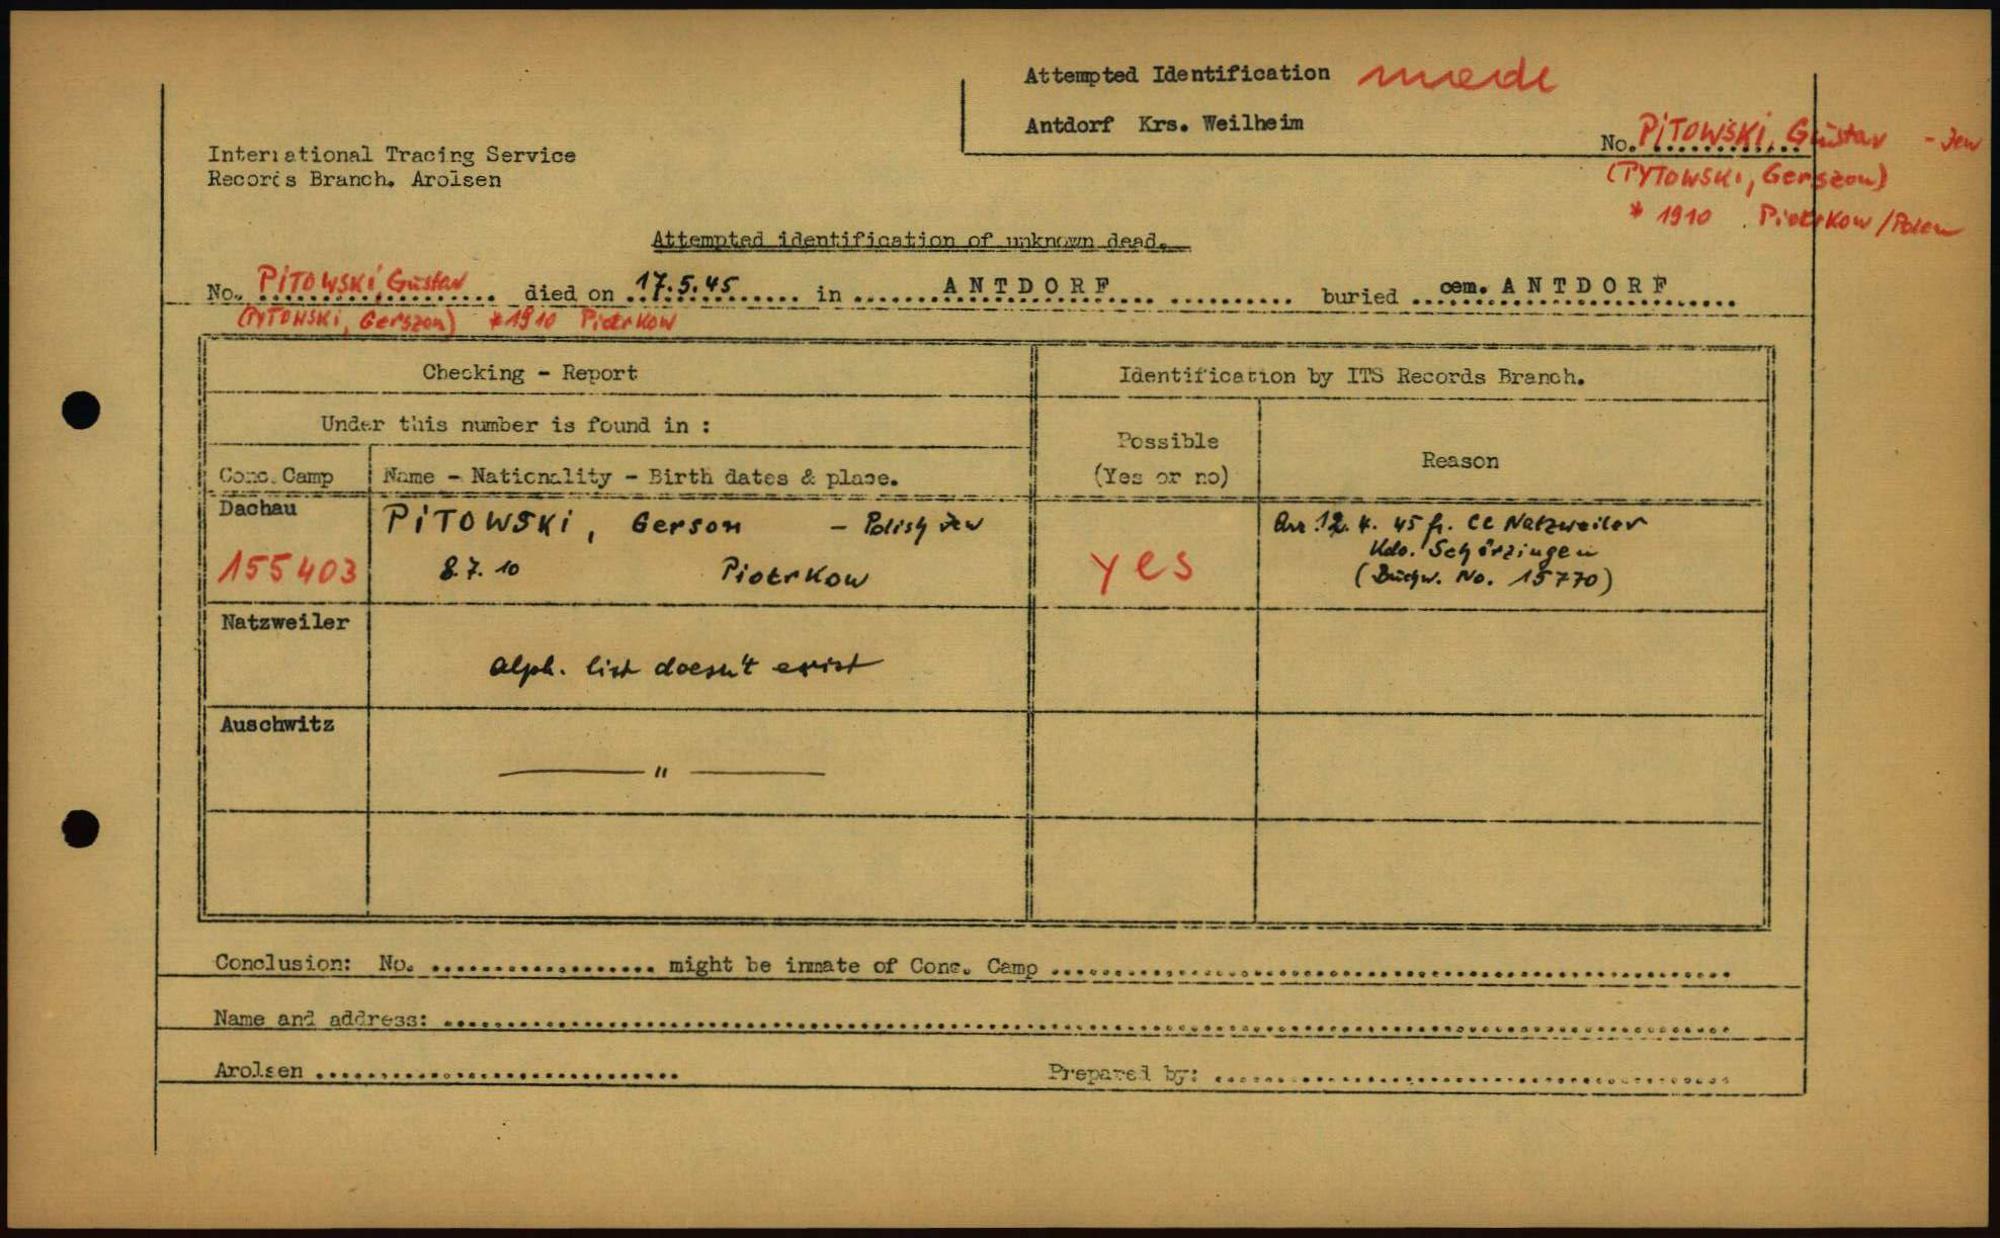 Attempted Identification made
Antdorf Krs. Weilheim
No. PiTOWSKi, Gustav - Jew
(PYTOWSKi, Gerszon)
* 1910 Piotrkow / Polen
International Tracing Service
Records Branch. Arolsen
Attempted identification of unknown dead.
No. PiTOWSKi, Gustav died on 17.5.45 in ANTDORF buried cem. ANTDORF
(PYTOWSKi, Gerszon) * 1910 Piotrkow
Checking - Report
Identification by ITS Records Branch.
Under this number is found in :
Possible
(Yes or no)
Reason
Conc. Camp
Name - Nationality - Birth dates & place.
Dachau
155403
PiTOWSKi, Gerson - Polish Jew
8.7.10 Piotrkow
yes
Arr. 12. 4. 45 fr. CC Natzweiler
Kdo. Schörzingen
(Buchw. No. 15770)
Natzweiler
alph. list doesn't exist
Auschwitz
— " —
Conclusion: No. .................. might be inmate of Conc. Camp ..................
Name and address: ..................
Arolsen ..................
Prepared by: ..................